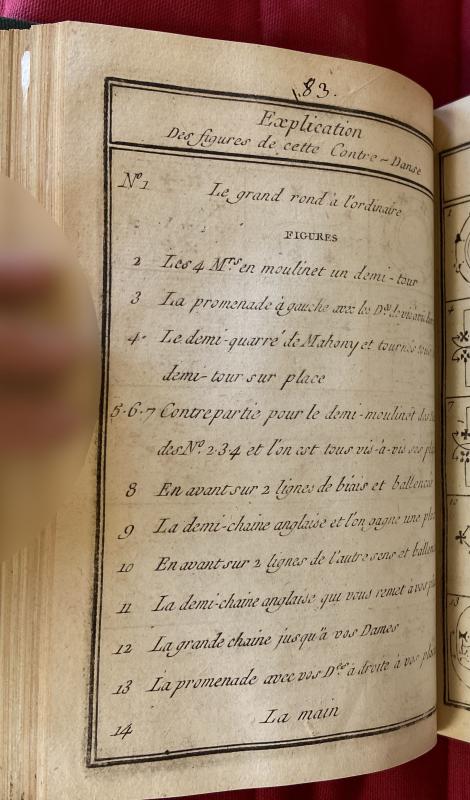 83.
Explication
Des figures de cette Contre-Danse
Nº1 Le grand rond à l'ordinaire
FIGURES
2 Les 4 Mrs en moulinet un demi-tour
3 La promenade à gauche avec les Des de vis
4. Le demi-quarré de Mahony et tournés
demi-tour sur place
5.6.7 Contrepartie pour le demi-moulinet des
des Nº. 2.3.4 et l'on est tous vis-à-vis ses
8 En avant sur 2 lignes de biais et
9 La demi-chaine anglaise et l'on gagne une
10 En avant sur 2 lignes de l'autre sens et
11 La demi-chaine anglaise qui vous remet a vos
12 La grande chaine jusqu'à vos Dames
13 La promenade avec vos Des à droite à vos
14 La main